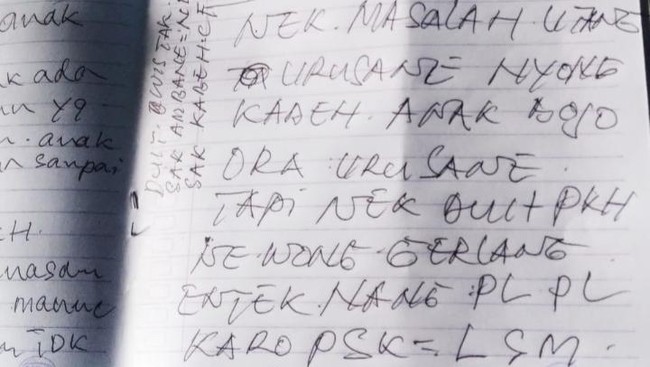 anak
k ada
n yg
n. anak
n sanpai
H.
masdn
manuc
n TDK
DUIT. OWIS TAK
SAK AMBANE = NE
SAK KABEH = CF
NEK. MASALAH UTANE
URUSANE NYONG
KABEH. ANAK BOJO
ORA URUSANE.
TAPI NEK DUIT PKH
NE WONG GERLANG
ENTEK. NANG PL PL
KARO PSK = LSM.